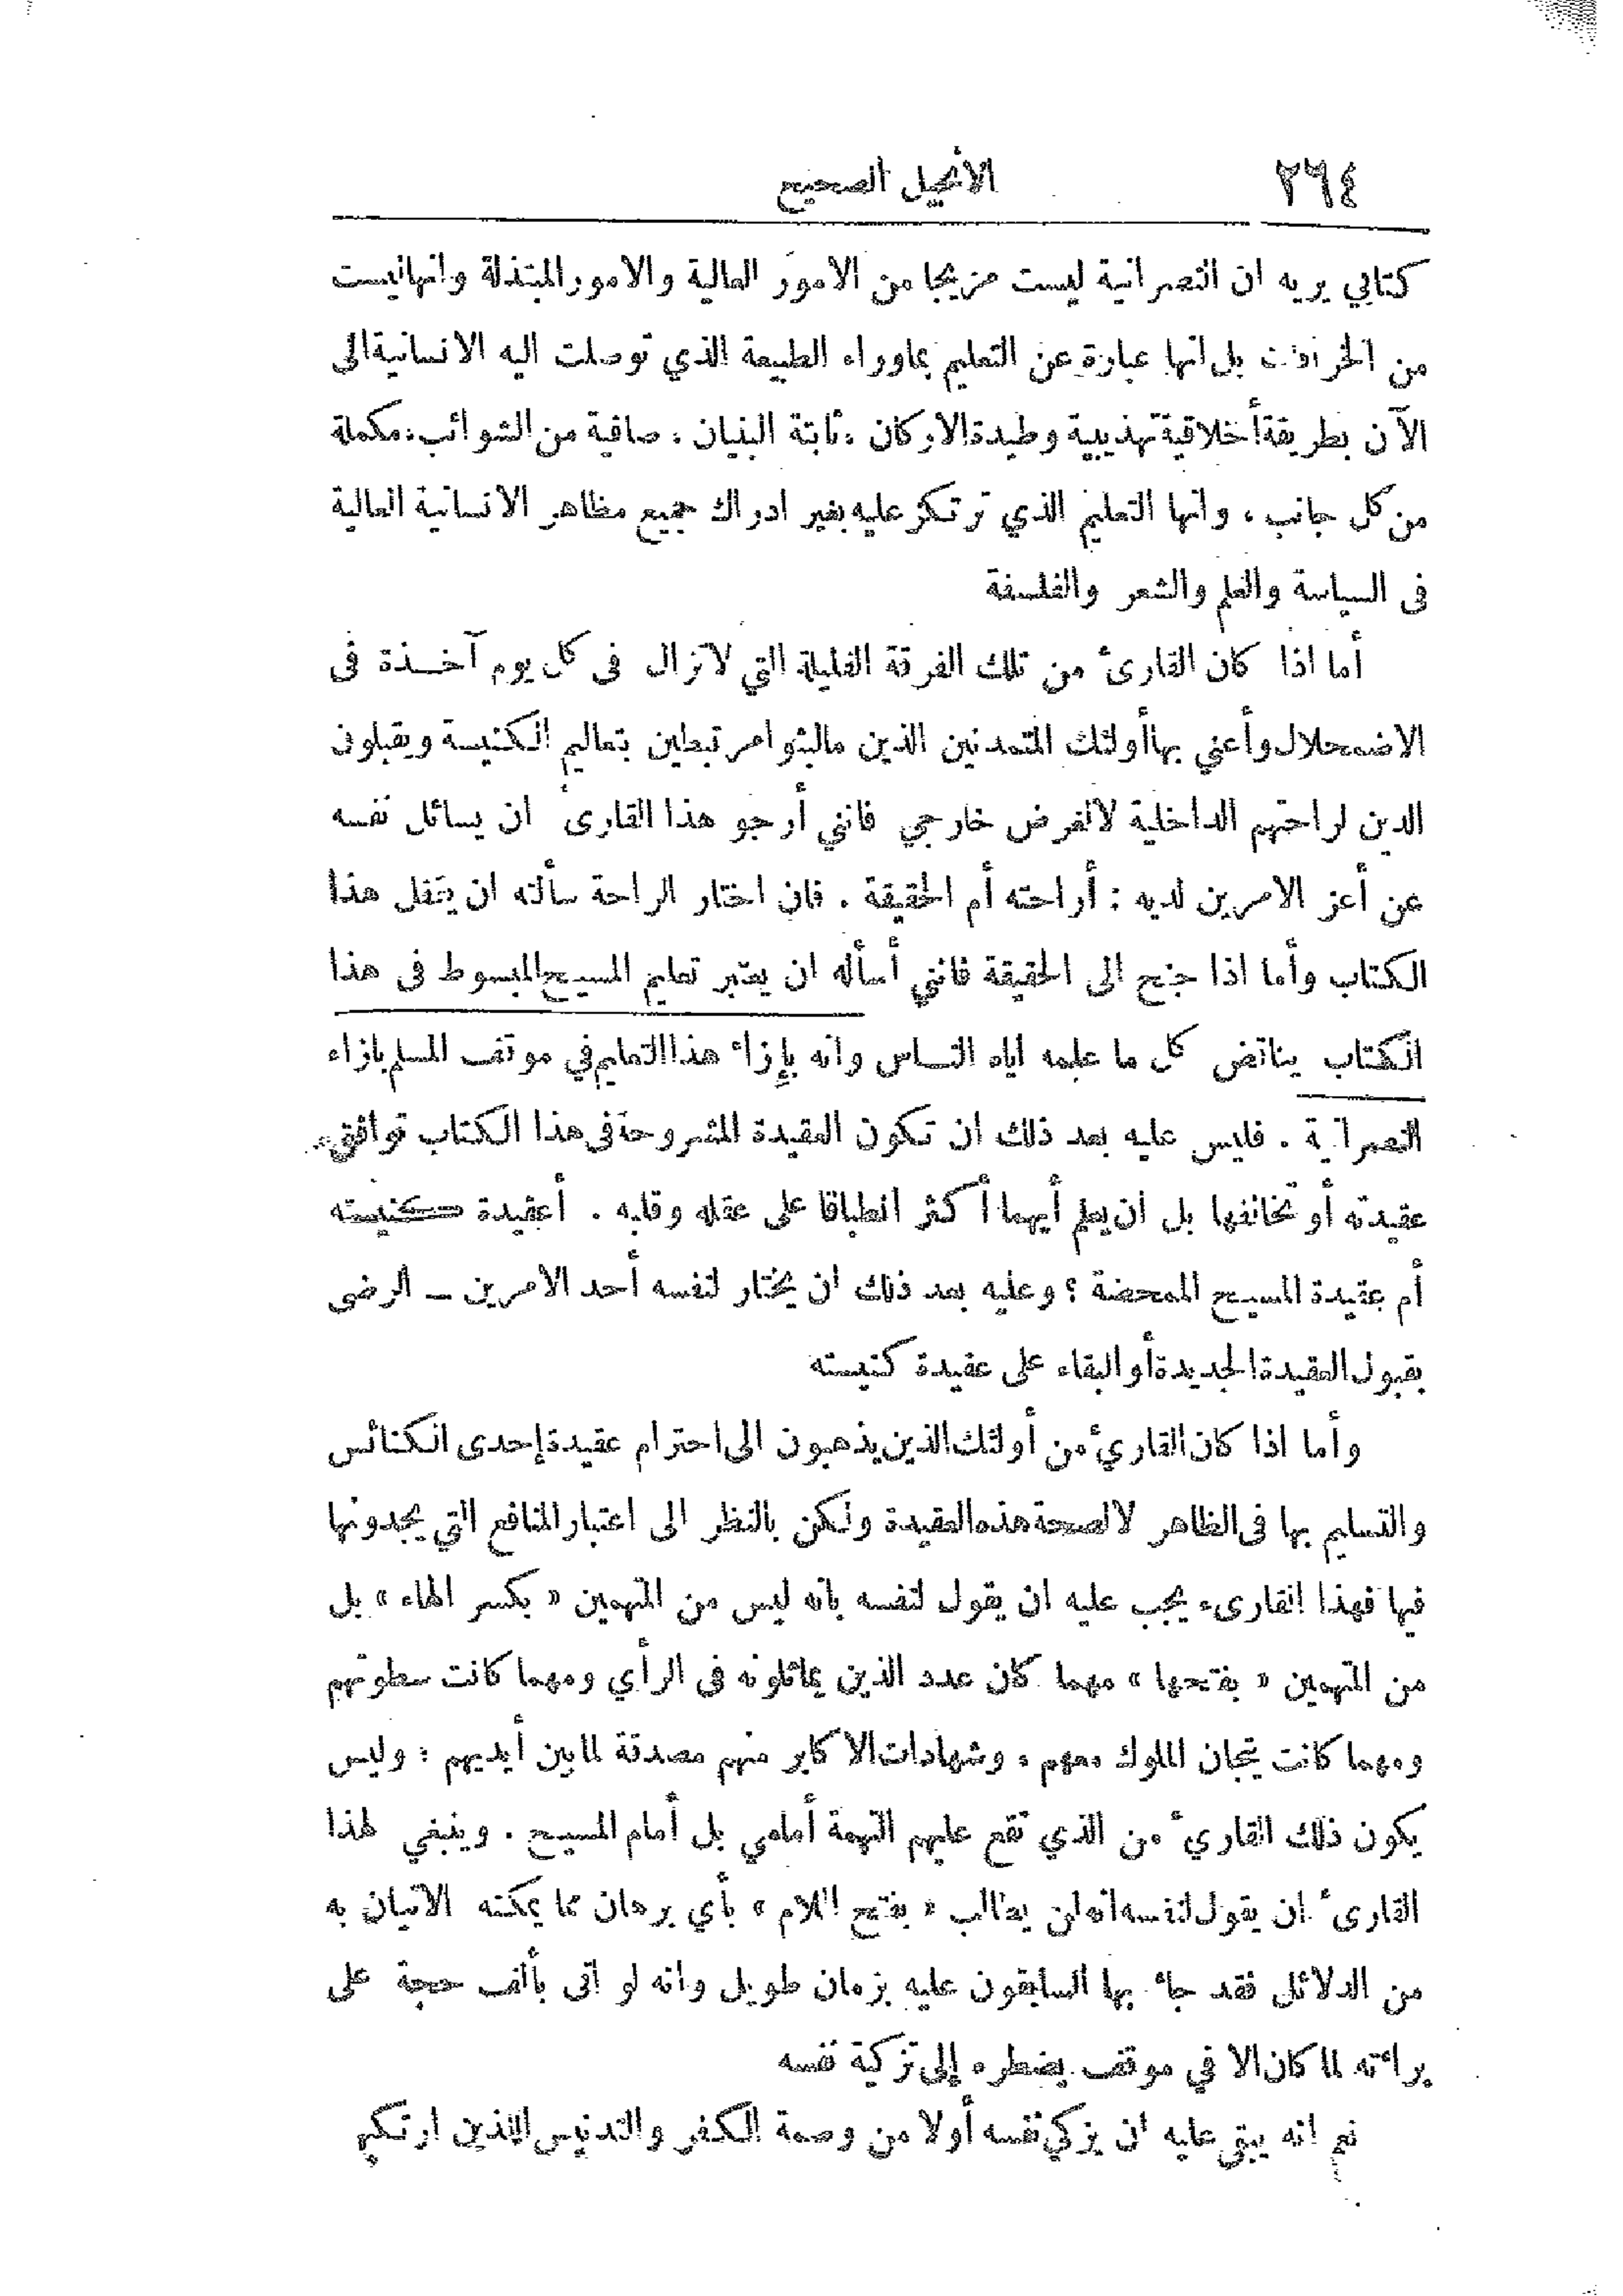 ٢٦٤
الأنجيل الصحيح
كتابي يريه ان النصرانية ليست مزيجا من الامور العالية والامور المبتذلة وانها ليست
من الخرافات بل انها عبارة عن التعليم بماوراء الطبيعة الذي توصلت اليه الانسانية الى
الآن بطريقة أخلاقية تهذيبية وطيدة الاركان ، ثابتة البنيان ، صافية من الشوائب ، مكملة
من كل جانب ، وانها التعليم الذي ترتكز عليه بغير ادراك جميع مظاهر الانسانية العالية
فى السياسة والعلم والشعر والفلسفة
أما اذا كان القارىء من تلك الفرقة القليلة التي لا تزال فى كل يوم آخذة فى
الاضمحلال وأعني بها أولئك المتمدنين الذين مالبثوا مرتبطين بتعاليم الكنيسة ويقبلون
الدين لراحتهم الداخلية لالغرض خارجي فانني أرجو هذا القارىء ان يسائل نفسه
عن أعز الامرين لديه : أراحته أم الحقيقة . فان اختار الراحة سألته ان يقفل هذا
الكتاب وأما اذا جنح الى الحقيقة فانني أسأله ان يعتبر تعليم المسيح المبسوط فى هذا
الكتاب يناقض كل ما علمه اياه الناس وانه بإزاء هذا التعليم في موقف المسلم بازاء
النصرانية . فليس عليه بعد ذلك ان تكون العقيدة المشروحة فى هذا الكتاب توافق
عقيدته أو تخالفها بل ان يعلم أيهما أكثر انطباقا على عقله وقلبه . أعقيدة كنيسته
أم عقيدة المسيح الممحضة ؟ وعليه بعد ذلك ان يختار لنفسه أحد الامرين ــ الرضى
بقبول العقيدة الجديدة أو البقاء على عقيدة كنيسته
وأما اذا كان القاريء من أولئك الذين يذهبون الى احترام عقيدة إحدى الكنائس
والتسليم بها فى الظاهر لا لصحة هذه العقيدة ولكن بالنظر الى اعتبار المنافع التي يجدونها
فيها فهذا القارىء يجب عليه ان يقول لنفسه بانه ليس من المتهمين « بكسر الهاء » بل
من المتهمين « بفتحها » مهما كان عدد الذين يماثلونه فى الرأي ومهما كانت سطوتهم
ومهما كانت تيجان الملوك معهم ، وشهادات الاكابر منهم مصدقة لما بين أيديهم : وليس
يكون ذلك القاريء من الذي تقع عليهم التهمة أمامي بل أمام المسيح . وينبغي لهذا
القارىء ان يقول لنفسه انه لن يطالب « بفتح اللام » بأي برهان مما يمكنه الاتيان به
من الدلائل فقد جاء بها السابقون عليه بزمان طويل وانه لو اتى بألف حجة على
براءته لما كان الا في موقف يضطره إلى تزكية نفسه
نعم انه يبقى عليه ان يزكي نفسه أولا من وصمة الكفر والتدنيس اللذين ارتكبهما